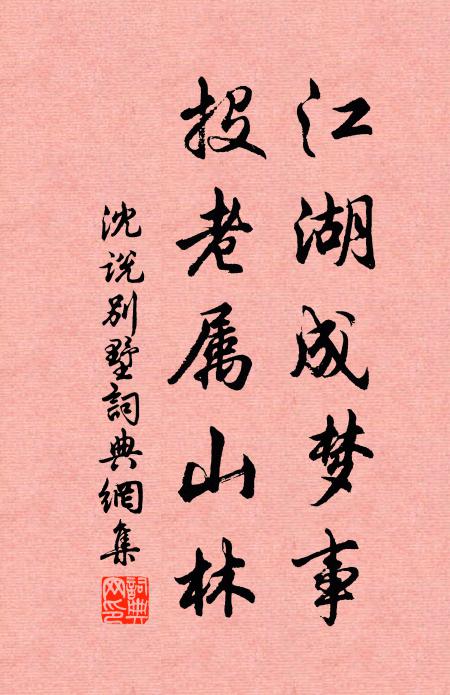 江湖成梦事
投老属山林
沈说别墅詞典網集
詞典网印